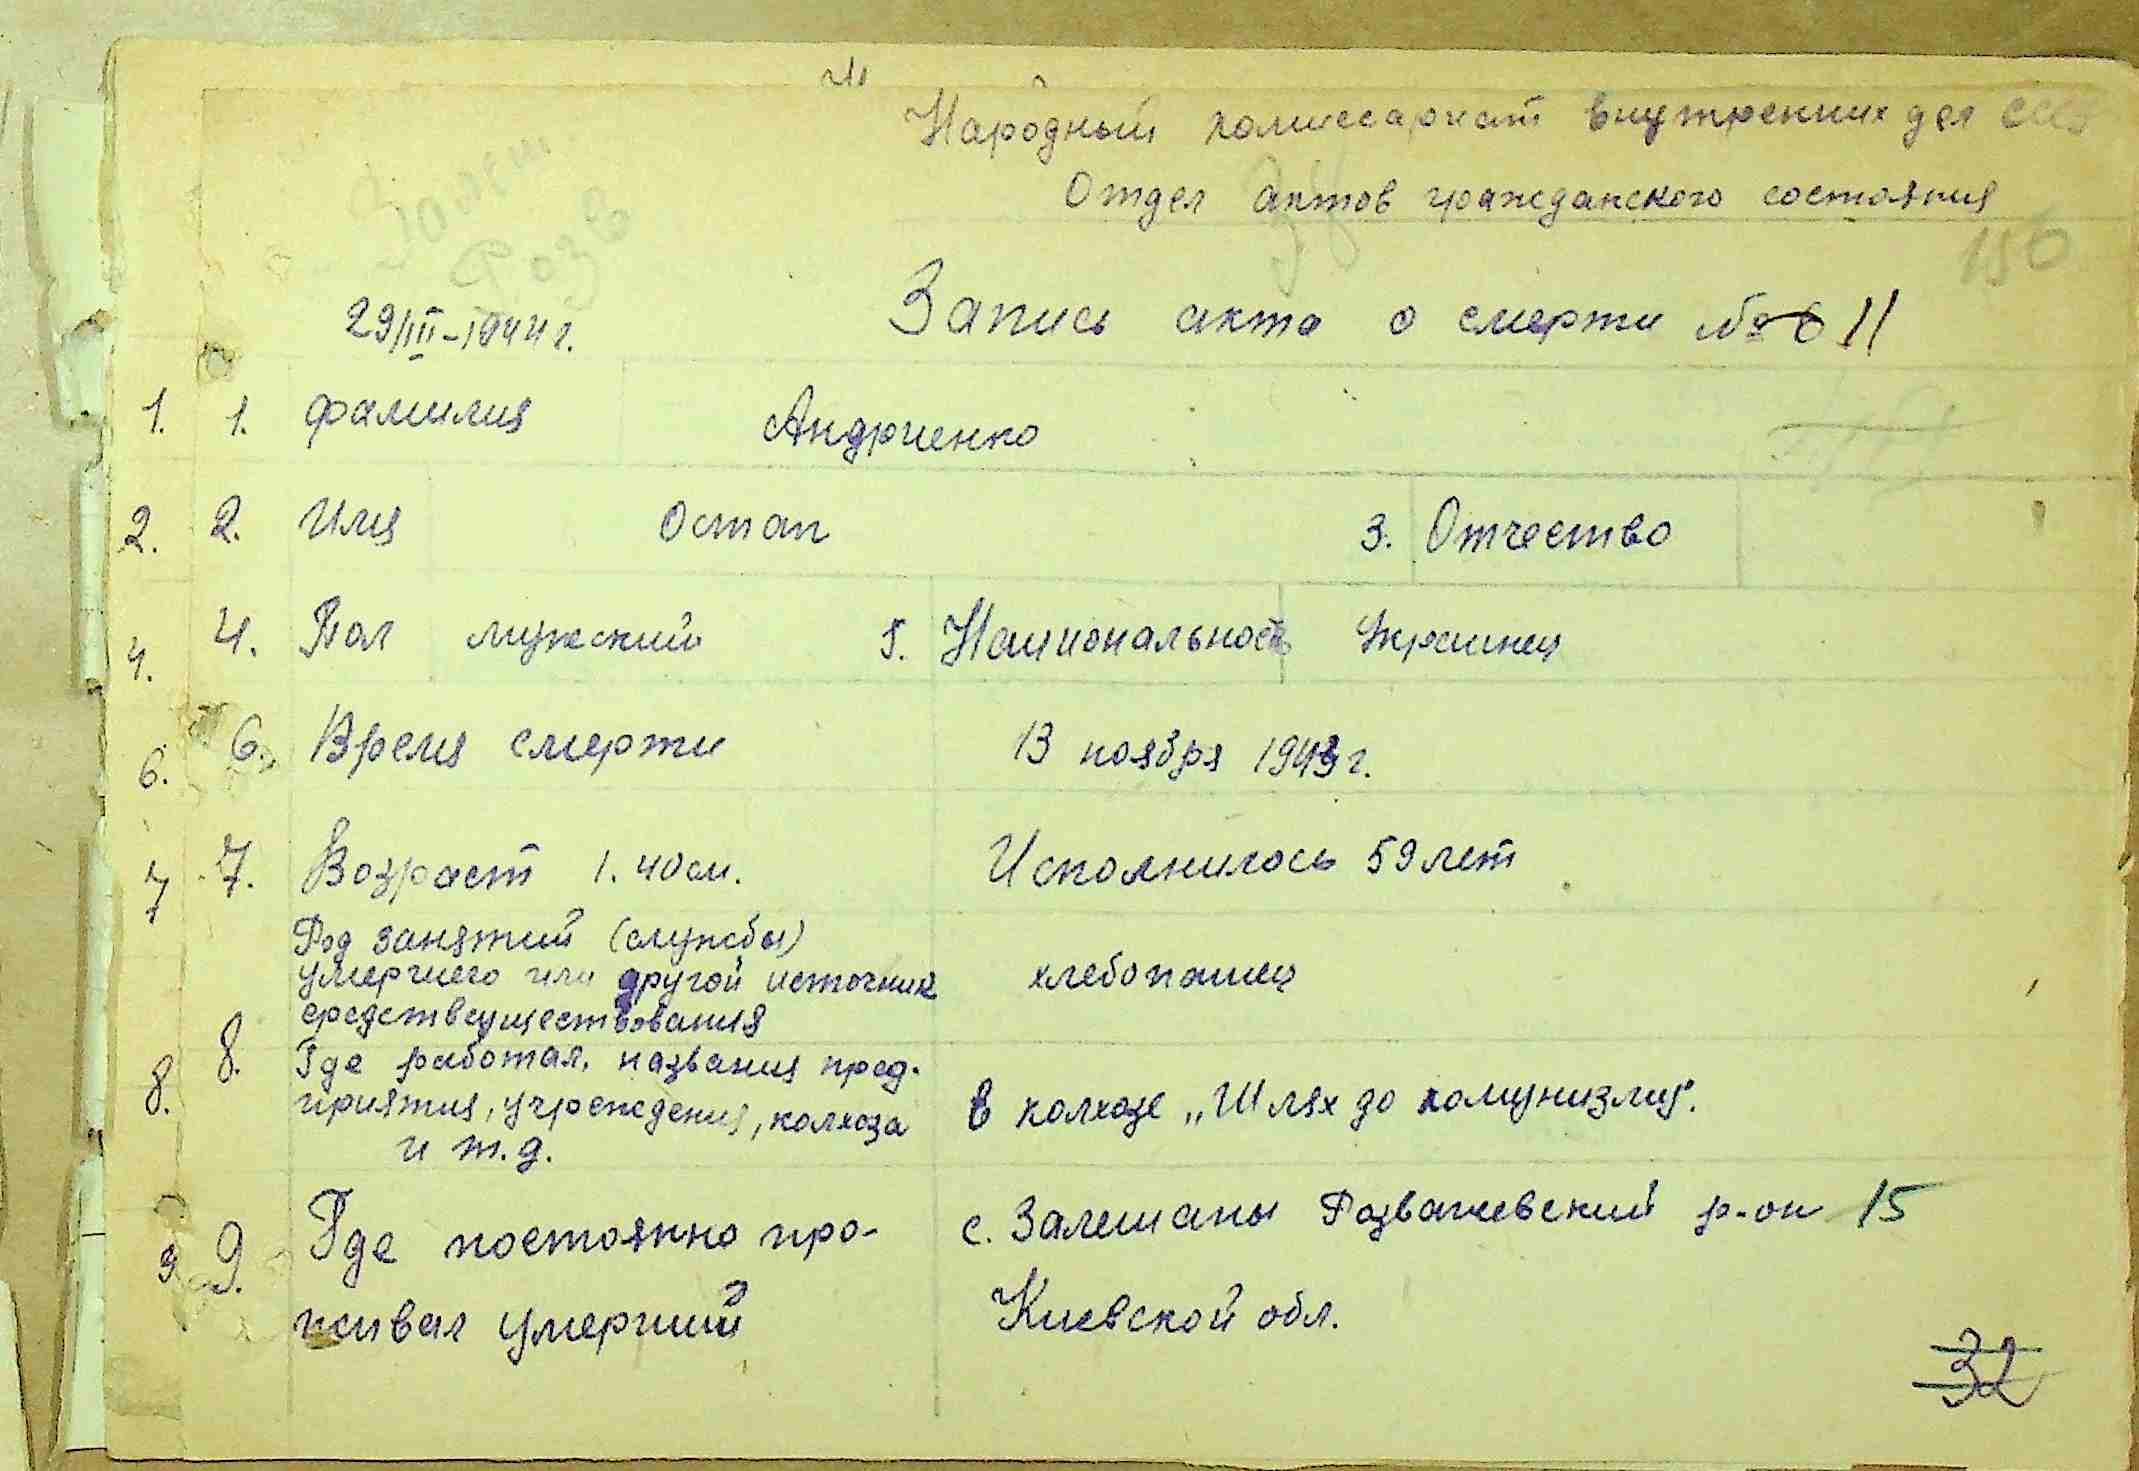 Народный комиссариат внутренних дел СССР
Отдел актов гражданского состояния
150
29/III-1944 г.
Запись акта о смерти № 6 11
1. 1. Фамилия Андриенко
2. 2. Имя Остап 3. Отчество
4. 4. Пол мужский 5. Национальность Украинец
6. 6. Время смерти 13 ноября 1943 г.
7 7. Возраст 1. 40 см. Исполнилось 59 лет
Род занятий (службы)
умершего или другой источник хлебопашец
средств существования
8. 8. Где работал, названия пред-
приятия, учреждения, колхоза в колхозе „Шлях до комунизму".
и т.д.
9 9. Где постоянно про- с. Залешаны Розважевский р-он 15
живал умерший Киевской обл.
32